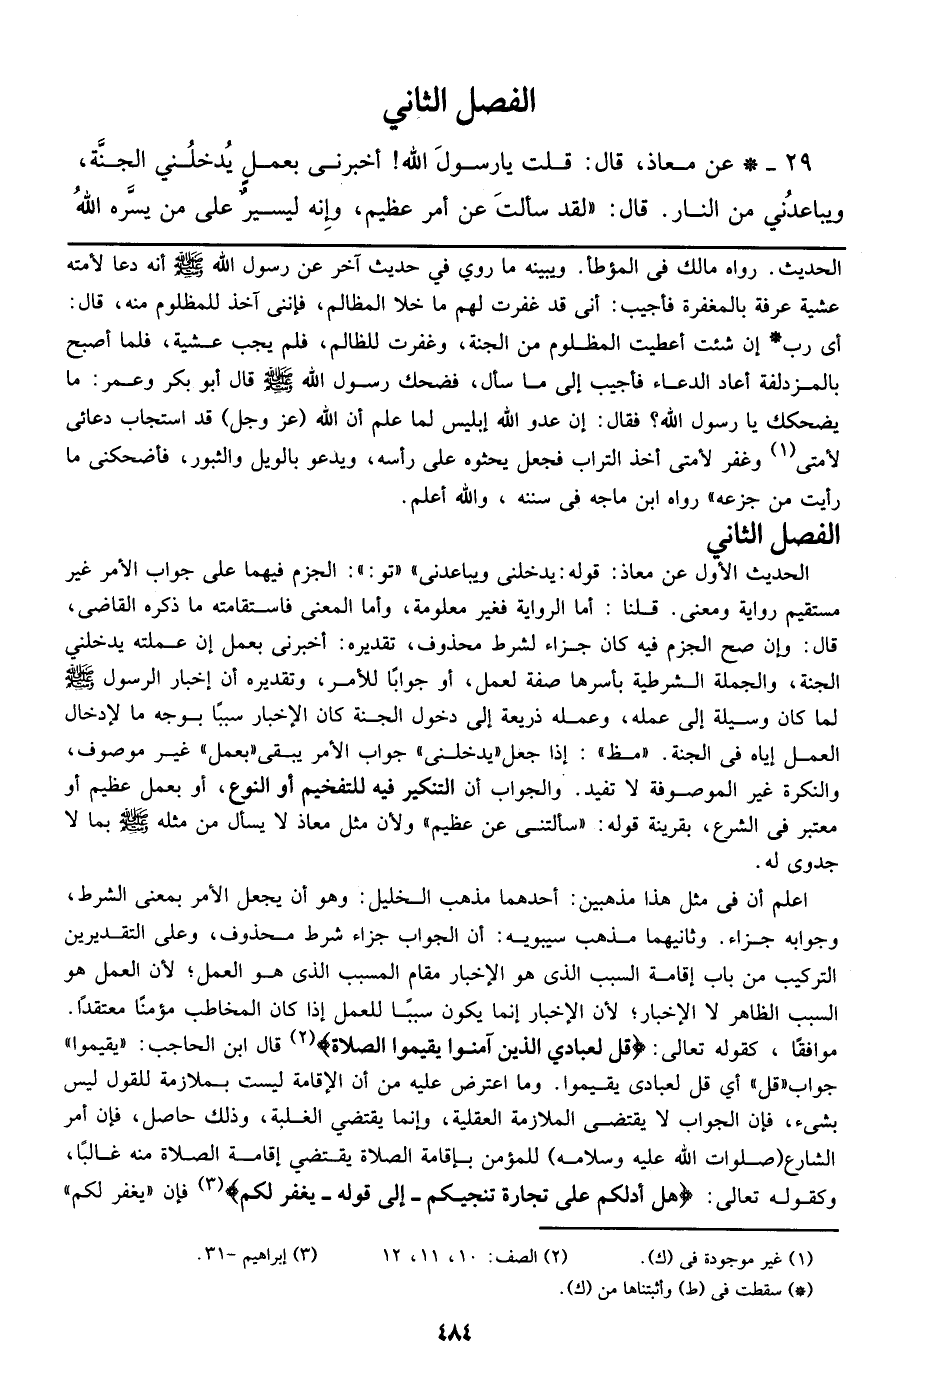 الفصل الثاني
٢٩ ـ * عن معاذ، قال: قلت يارسولَ الله! أخبرنى بعملٍ يُدخلُني الجنَّة،
ويباعدُني من النار. قال: «لقد سألتَ عن أمر عظيم، وإِنه ليسيرٌ على من يسَّره اللهُ
الحديث. رواه مالك فى المؤطأ. ويبينه ما روي في حديث آخر عن رسول الله ﷺ أنه دعا لأمته
عشية عرفة بالمغفرة فأجيب: أنى قد غفرت لهم ما خلا المظالم، فإننى آخذ للمظلوم منه، قال:
أى رب* إن شئت أعطيت المظلوم من الجنة، وغفرت للظالم، فلم يجب عشية، فلما أصبح
بالمزدلفة أعاد الدعاء فأجيب إلى ما سأل، فضحك رسول الله ﷺ قال أبو بكر وعمر: ما
يضحكك يا رسول الله؟ فقال: إن عدو الله إبليس لما علم أن الله (عز وجل) قد استجاب دعائى
لأمتى(١) وغفر لأمتى أخذ التراب فجعل يحثوه على رأسه، ويدعو بالويل والثبور، فأضحكنى ما
رأيت من جزعه» رواه ابن ماجه فى سننه ، والله أعلم.
الفصل الثاني
الحديث الأول عن معاذ: قوله:يدخلنى ويباعدنى» «تو:»: الجزم فيهما على جواب الأمر غير
مستقيم رواية ومعنى. قلنا : أما الرواية فغير معلومة، وأما المعنى فاستقامته ما ذكره القاضى،
قال: وإن صح الجزم فيه كان جزاء لشرط محذوف، تقديره: أخبرنى بعمل إن عملته يدخلني
الجنة، والجملة الشرطية بأسرها صفة لعمل، أو جوابًا للأمر، وتقديره أن إخبار الرسول ﷺ
لما كان وسيلة إلى عمله، وعمله ذريعة إلى دخول الجنة كان الإخبار سببًا بوجه ما لإدخال
العمل إياه فى الجنة. «مظ» : إذا جعل«يدخلنى» جواب الأمر يبقى«بعمل» غير موصوف،
والنكرة غير الموصوفة لا تفيد. والجواب أن التنكير فيه للتفخيم أو النوع، أو بعمل عظيم أو
معتبر فى الشرع، بقرينة قوله: «سألتنى عن عظيم» ولأن مثل معاذ لا يسأل من مثله ﷺ بما لا
جدوى له.
اعلم أن فى مثل هذا مذهبين: أحدهما مذهب الخليل: وهو أن يجعل الأمر بمعنى الشرط،
وجوابه جزاء. وثانيهما مذهب سيبويه: أن الجواب جزاء شرط محذوف، وعلى التقديرين
التركيب من باب إقامة السبب الذى هو الإخبار مقام المسبب الذى هو العمل؛ لأن العمل هو
السبب الظاهر لا الإخبار؛ لأن الإخبار إنما يكون سببًا للعمل إذا كان المخاطب مؤمنًا معتقدًا.
موافقًا ، كقوله تعالى: ﴿قل لعبادي الذين آمنوا يقيموا الصلاة﴾(٢) قال ابن الحاجب: «يقيموا»
جواب«قل» أي قل لعبادى يقيموا. وما اعترض عليه من أن الإقامة ليست بملازمة للقول ليس
بشىء، فإن الجواب لا يقتضى الملازمة العقلية، وإنما يقتضي الغلبة، وذلك حاصل، فإن أمر
الشارع(صلوات الله عليه وسلامه) للمؤمن بإقامة الصلاة يقتضي إقامة الصلاة منه غالبًا،
وكقوله تعالى: ﴿هل أدلكم على تجارة تنجيكم ـ إلى قوله ـ يغفر لكم﴾(٣) فإن «يغفر لكم»
(١) غير موجودة فى (ك). (٢) الصف: ١٠، ١١، ١٢ (٣) إبراهيم -٣١.
(*) سقطت فى (ط) وأثبتناها من (ك).
٤٨٤